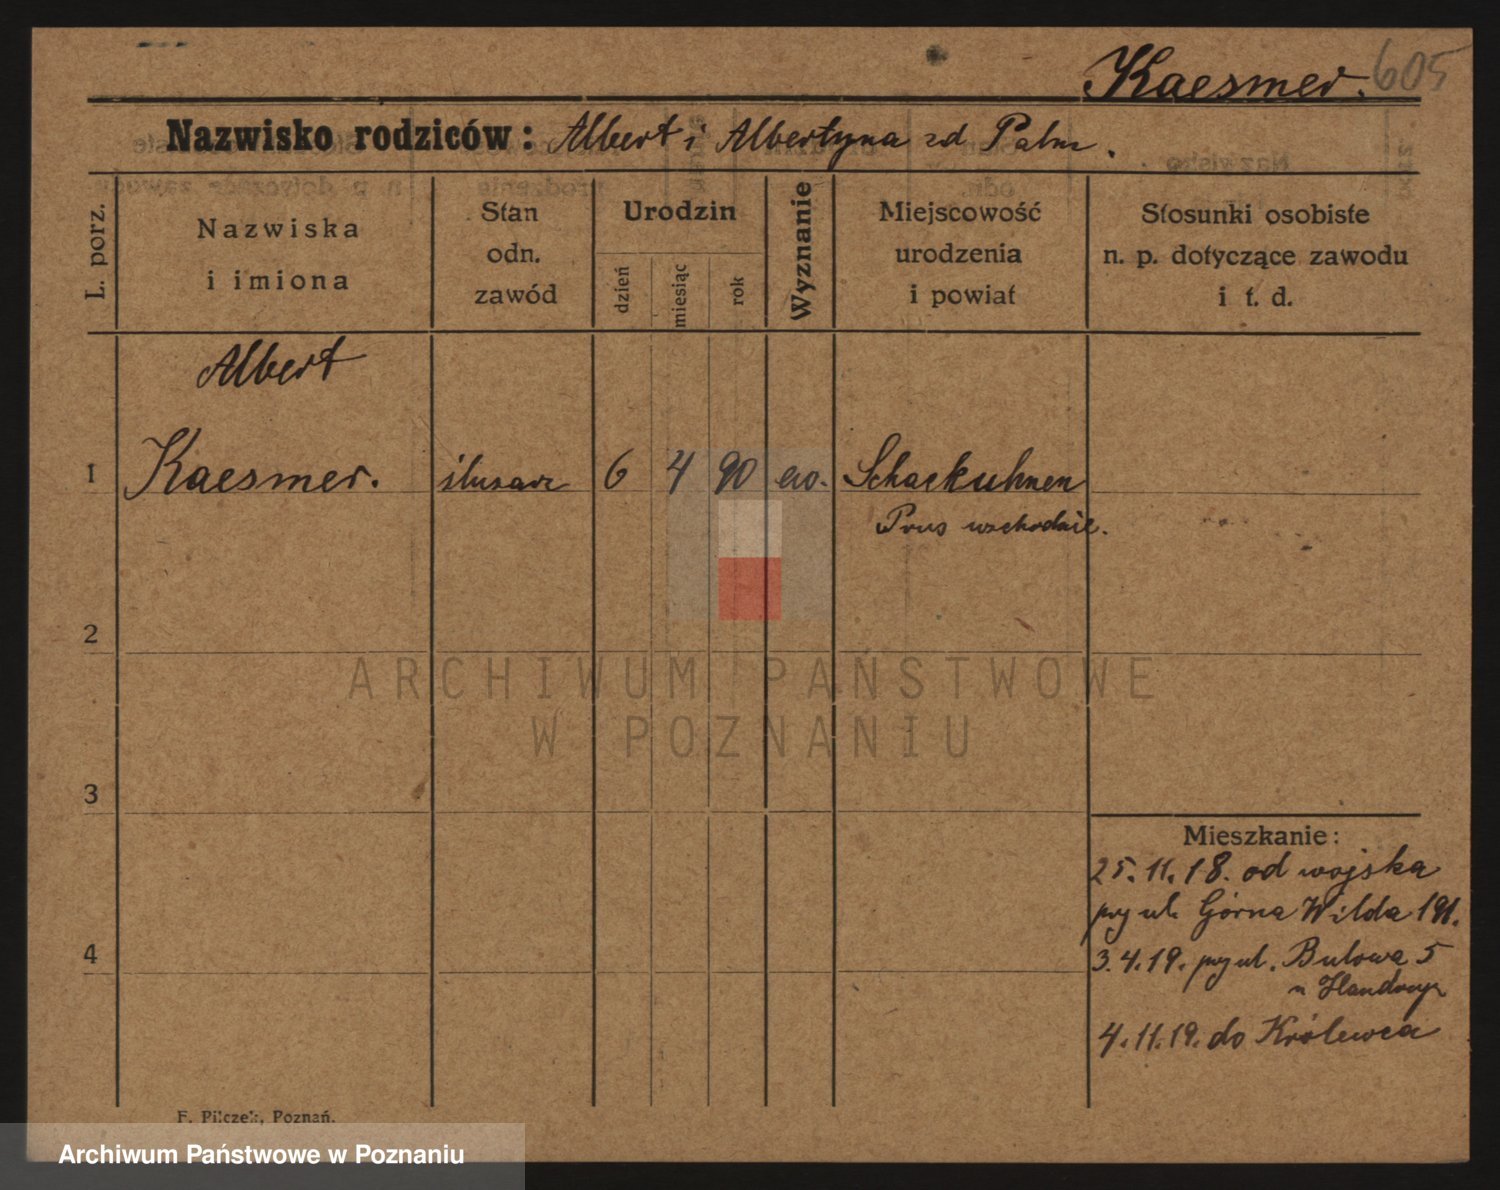 Kaesmer. 605
Nazwisko rodziców: Albert i Albertyna zd Palm.
L. porz.
Nazwiska
i imiona
Stan
odn.
zawód
Urodzin
dzień
miesiąc
rok
Wyznanie
Miejscowość
urodzenia
i powiat
Stosunki osobiste
n. p. dotyczące zawodu
i t. d.
Albert
1 Kaesmer. ślusarz 6 4 90 ew. Schackuhnen
Prus wschodnie.
2
ARCHIWUM PAŃSTWOWE
W POZNANIU
3
Mieszkanie:
25.11.18. od wojska
przy ul. Górna Wilda 191.
4
3.4.19. przy ul. Bulowa 5
4.11.19. do Królewca
F. Pilczek, Poznań.
Archiwum Państwowe w Poznaniu